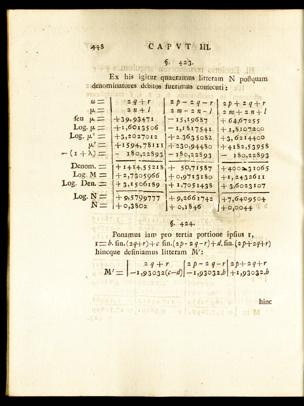 448 CAPVT III.
§. 423.
Ex his igitur quaeramus litteram N postquam
denominatores debitos fuerimus consecuti:
ω = | 2q+r | 2p−2q−r | 2p+2q+r
μ = | 2n+l | 2m−2n−l | 2m+2n+l
seu μ = | +39,93471 | −15,19687 | +64,67255
Log. μ = | +1,6013506 | −1,1817541 | +1,8107200
Log. μ² = | +3,2027012 | +2,3635082 | +3,6214400
μ² = | +1594,78111 | +230,94480 | +4182,53958
−(1+λ) = | −180,22893 | −180,22893 | −180,22893
Denom. = | +1414,55218 | +50,71587 | +4002,31065
Log. M = | +2,7305966 | +0,9713180 | +1,2432611
Log. Den. = | +3,1506189 | +1,7051438 | +3,6023107
Log. N = | +9,5799777 | +9,2661742 | +7,6409504
N = | +0,3802 | +0,1846 | +0,0044
§. 424.
Ponamus iam pro tertia portione ipsius r,
r = b. sin.(2q+r)+c sin.(2p−2q−r)+d. sin.(2p+2q+r)
hincque definiamus litteram M':
| 2q+r | 2p−2q−r | 2p+2q+r
M' = | −1,93032(c−d) | −1,93032.b | +1,93032.b
hinc